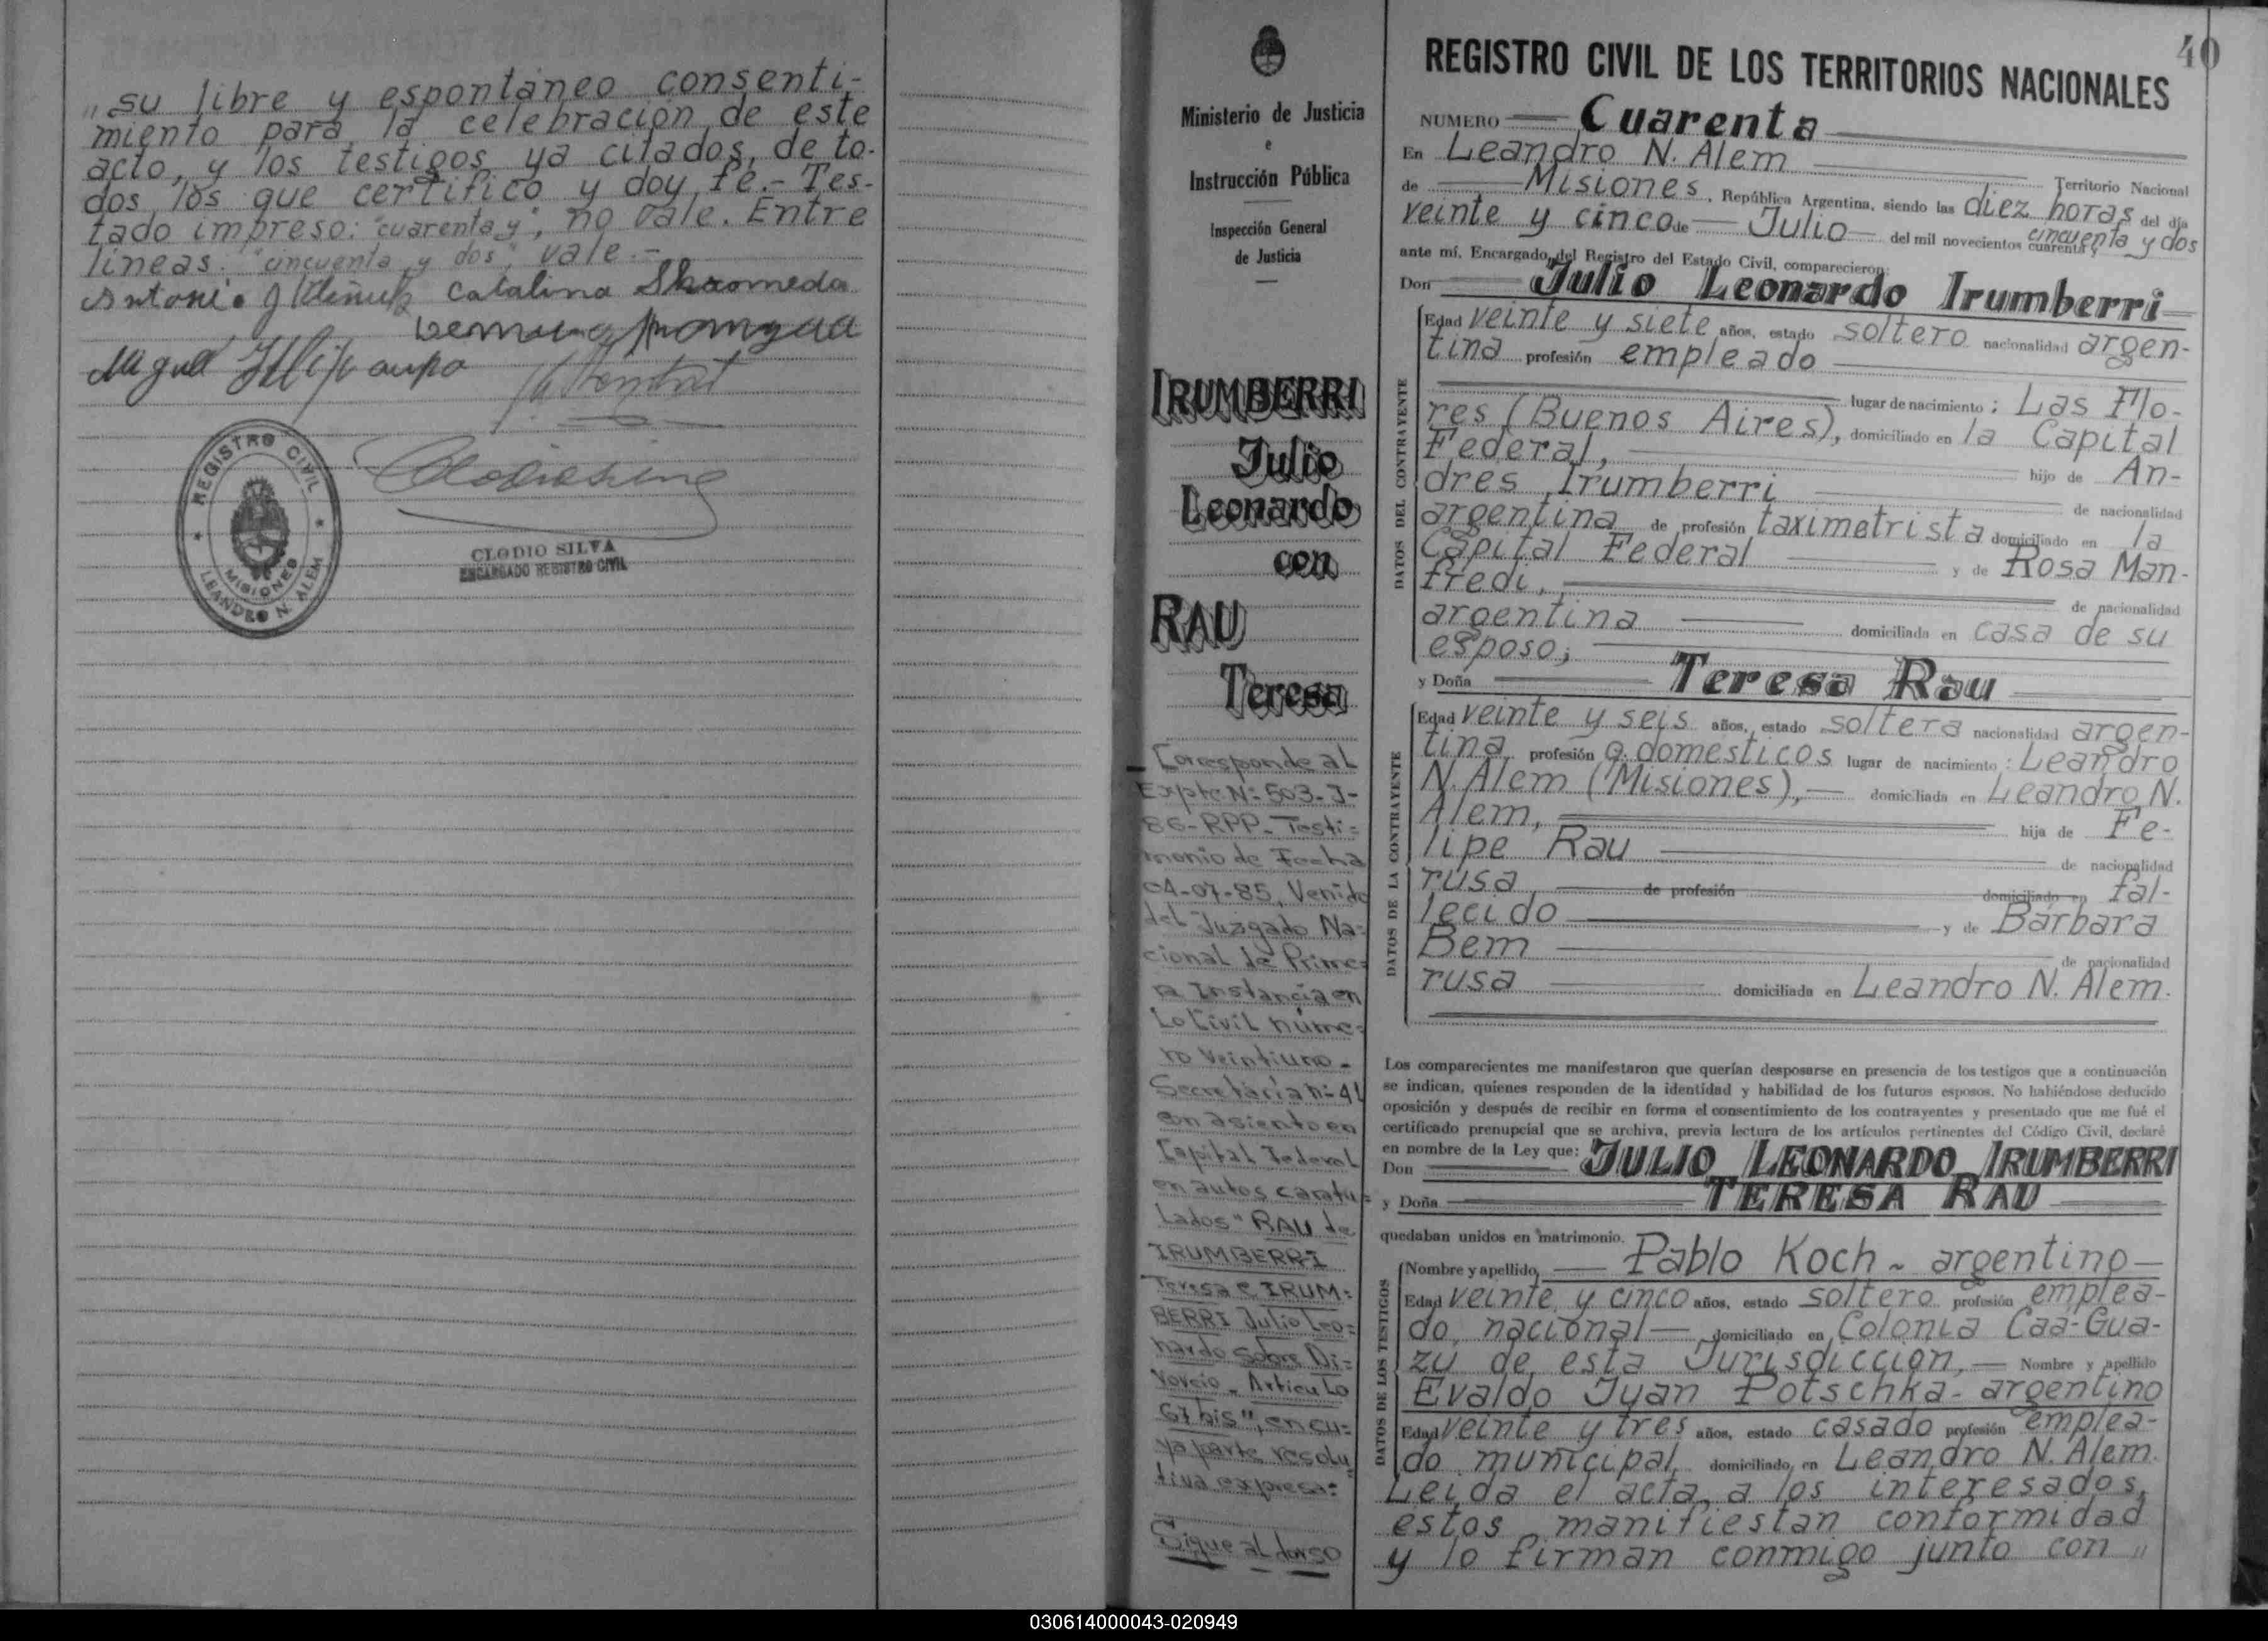 „su libre y espontáneo consenti-
miento para la celebración de este
acto, y los testigos ya citados, de to-
dos los que certifico y doy fe.- Tes-
tado impreso: "cuarenta y", no vale. Entre
líneas: "cincuenta y dos", vale.-
Antonio J Catalina Skromeda
Miguel
REGISTRO CIVIL
MISIONES
LEANDRO N. ALEM
CLODIO SILVA
ENCARGADO REGISTRO CIVIL
Ministerio de Justicia
e
Instrucción Pública
Inspección General
de Justicia
IRUMBERRI
Julio
Leonardo
con
RAU
Teresa
Corresponde al
Expte Nº 503-J-
86-RPP- Testi=
monio de Fecha
04-07-85, Venido
del Juzgado Na=
cional de Prime=
ra Instancia en
Lo Civil núme=
ro Veintiuno-
Secretaría nº 41
con asiento en
Capital Federal
en autos caratu=
Lados "RAU de
IRUMBERRI
Teresa e IRUM=
BERRI Julio Leo=
nardo Sobre Di=
vorcio- Articulo
67 bis", en cu=
ya parte resolu
tiva expresa:
Sigue al dorso
40
REGISTRO CIVIL DE LOS TERRITORIOS NACIONALES
NUMERO Cuarenta
En Leandro N. Alem Territorio Nacional
de Misiones, República Argentina, siendo las diez horas del día
veinte y cinco de Julio del mil novecientos cuarenta y cincuenta y dos
ante mí, Encargado del Registro del Estado Civil, comparecieron:
Don Julio Leonardo Irumberri
DATOS DEL CONTRAYENTE
Edad veinte y siete años, estado soltero nacionalidad argen-
tina profesión empleado
lugar de nacimiento: Las Flo-
res (Buenos Aires), domiciliado en la Capital
Federal, hijo de An-
drés Irumberri de nacionalidad
argentina de profesión taximetrista domiciliado en la
Capital Federal y de Rosa Man-
fredi, de nacionalidad
argentina domiciliada en casa de su
esposo;
y Doña Teresa Rau
DATOS DE LA CONTRAYENTE
Edad veinte y seis años, estado soltera nacionalidad argen-
tina profesión q. domesticos lugar de nacimiento: Leandro
N. Alem (Misiones), domiciliada en Leandro N.
Alem, hija de Fe-
lipe Rau de nacionalidad
rusa de profesión domiciliado en fal-
lecido y de Bárbara
Bem de nacionalidad
rusa domiciliada en Leandro N. Alem.
Los comparecientes me manifestaron que querían desposarse en presencia de los testigos que a continuación
se indican, quienes responden de la identidad y habilidad de los futuros esposos. No habiéndose deducido
oposición y después de recibir en forma el consentimiento de los contrayentes y presentado que me fué el
certificado prenupcial que se archiva, previa lectura de los artículos pertinentes del Código Civil, declaré
en nombre de la Ley que:
Don JULIO LEONARDO IRUMBERRI
y Doña TERESA RAU
quedaban unidos en matrimonio.
DATOS DE LOS TESTIGOS
Nombre y apellido Pablo Koch - argentino
Edad veinte y cinco años, estado soltero profesión emplea-
do nacional domiciliado en Colonia Caá-Gua-
zú de esta Jurisdicción, Nombre y apellido
Evaldo Iván Potschka - argentino
Edad veinte y tres años, estado casado profesión emplea-
do municipal domiciliado en Leandro N. Alem.
Leída el acta, a los interesados,
estos manifiestan conformidad
y lo firman conmigo junto con „
030614000043-020949